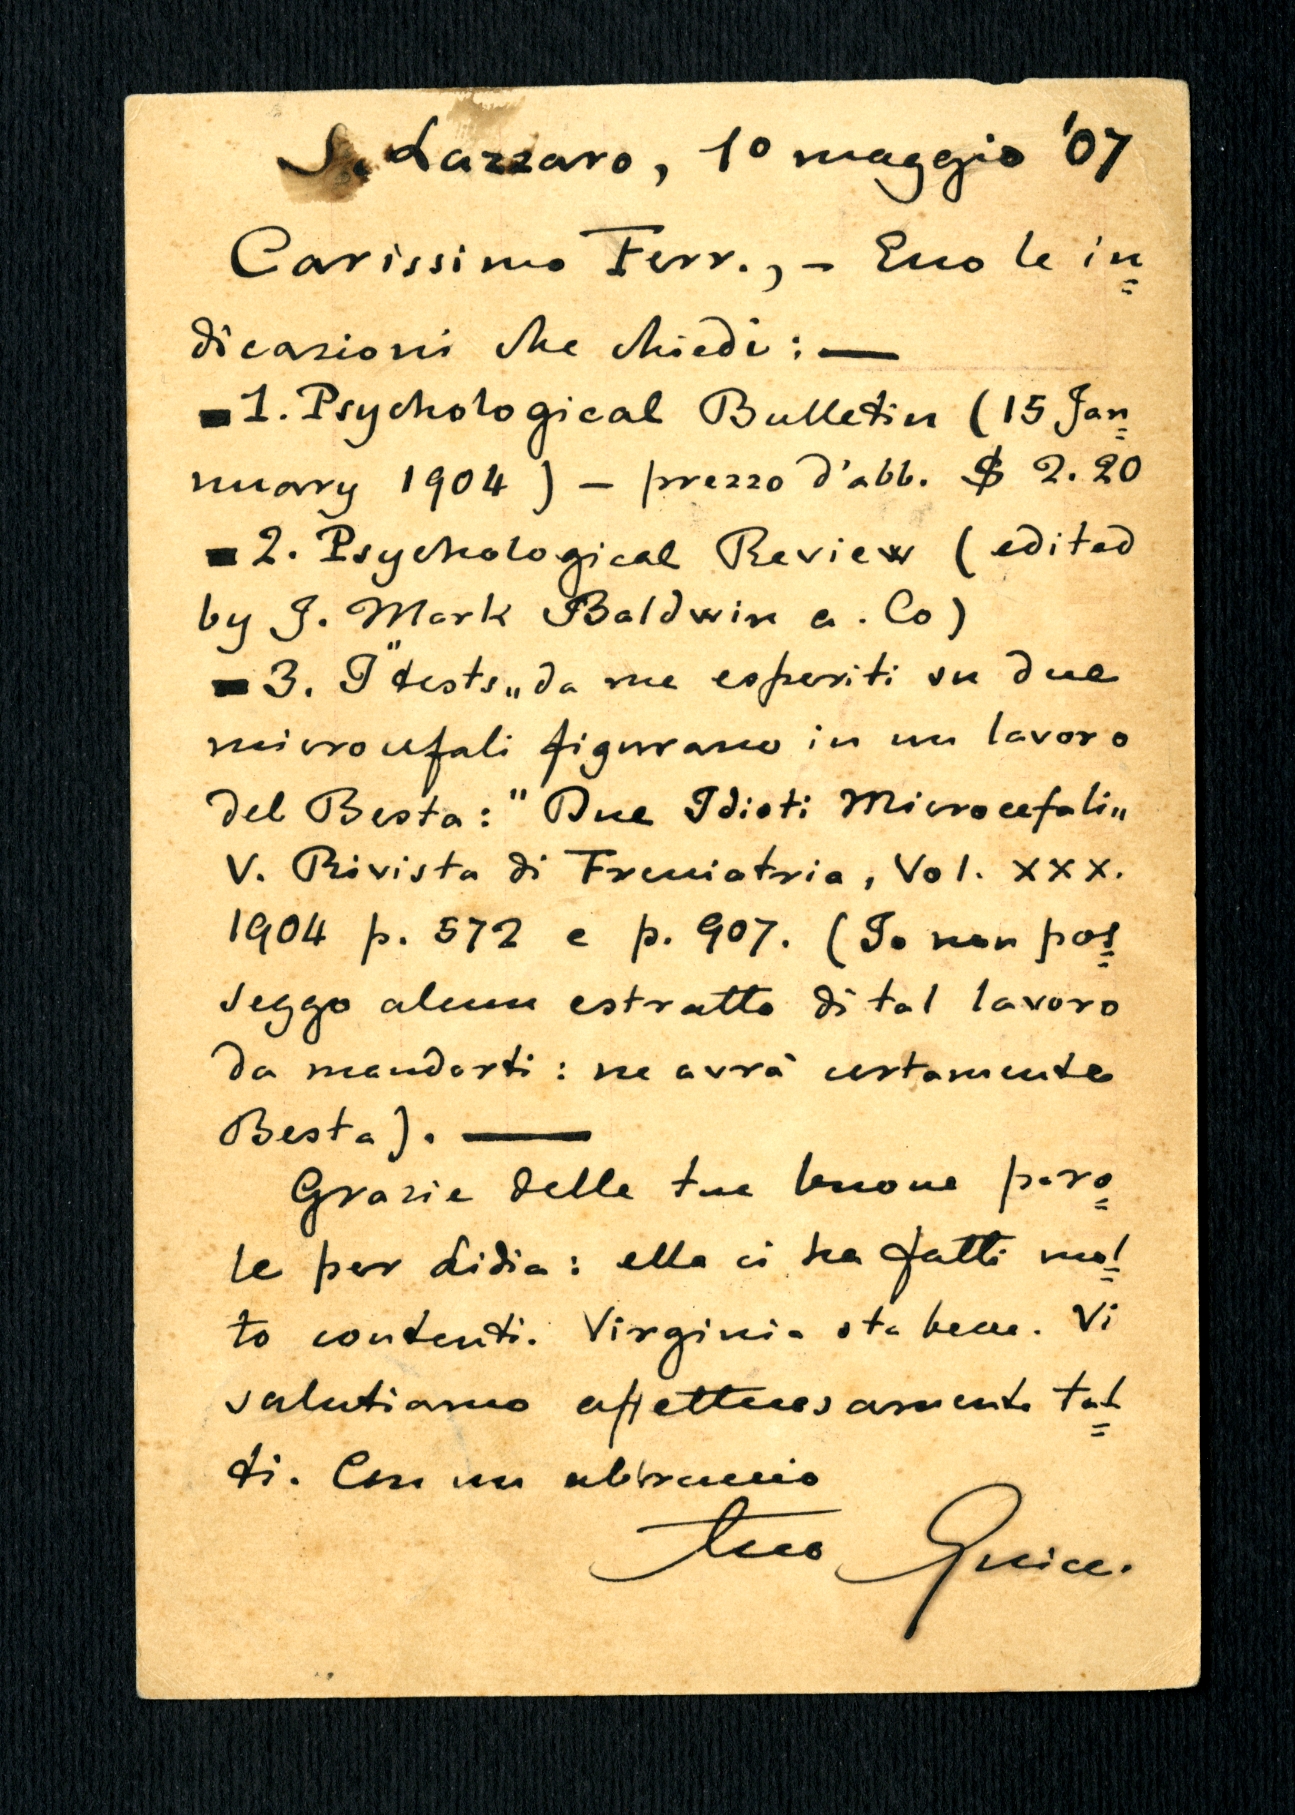 S. Lazzaro, 1º maggio '07
Carissimo Ferr., – Ecco le in=
dicazioni che chiedi: —
– 1. Psychological Bulletin (15 Jan=
nuary 1904) – prezzo d'abb. $ 2.20
– 2. Psychological Review (edited
by J. Mark Baldwin a. Co)
– 3. I "tests„ da me esperiti su due
microcefali figurano in un lavoro
del Besta: "Due Idioti Microcefali„
V. Rivista di Freniatria, Vol. XXX.
1904 p. 572 e p. 907. (Io non pos=
seggo alcun estratto di tal lavoro
da mandarti: ne avrà certamente
Besta). —
Grazie delle tue buone paro=
le per Lidia: ella ci ha fatti mol=
to contenti. Virginia sta bene. Vi
salutiamo affettuosamente tut=
ti. Con un abbraccio
tuo Guicc.